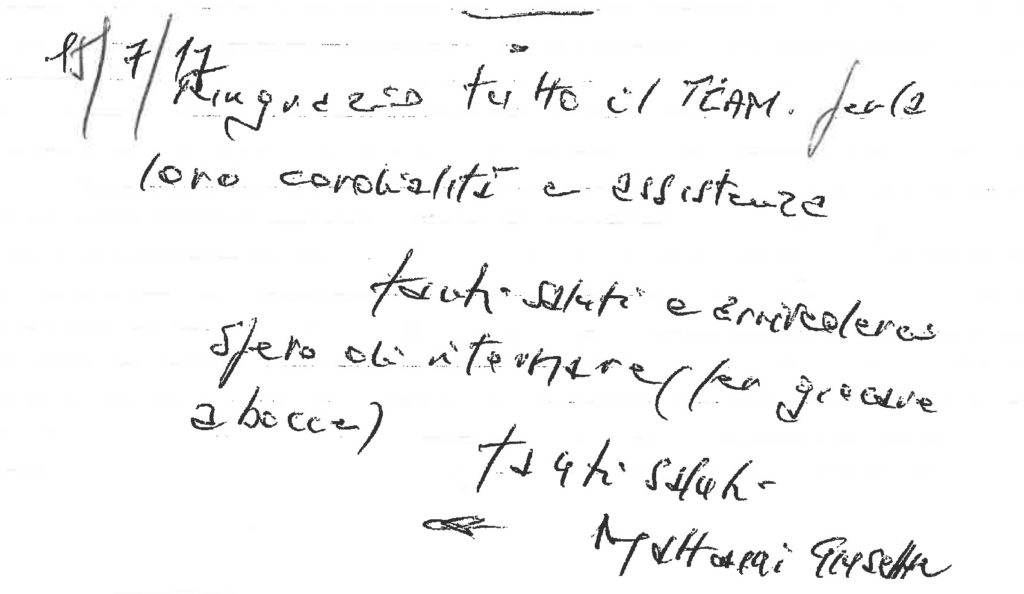 15/7/17
Ringrazio tutto il TEAM. per la
loro cordialità e assistenza
tanti saluti e arrivederci
Spero di ritornare (per giocare
a bocce)
tanti saluti
Giuseppe